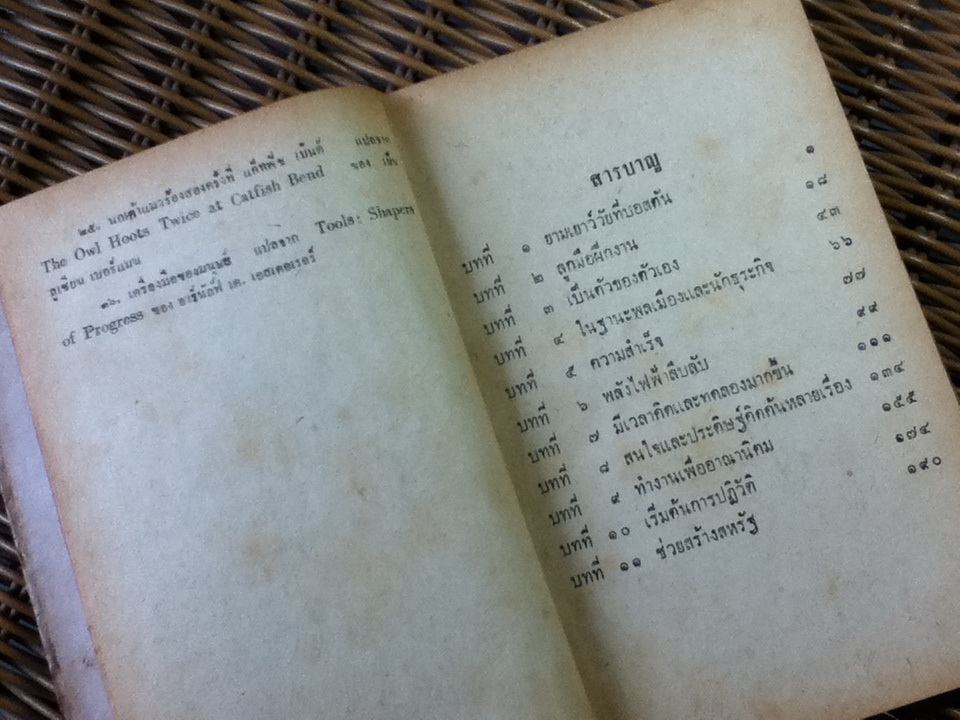 ๒๕. นกเค้าแมวร้องสองครั้งที่ แค็ทฟิช เบ็นด์ แปลจาก
The Owl Hoots Twice at Catfish Bend ของ เบ็น
ลูเชียน เบอร์แมน
๒๖. เครื่องมือของมนุษย์ แปลจาก Tools: Shapers
of Progress ของ อาร์นัลฟ์ เค. เอสเตอเรอร์
สารบาญ
บทที่ ๑ ยามเยาว์วัยที่บอสตัน ๑
บทที่ ๒ ลูกมือฝึกงาน ๑๘
บทที่ ๓ เป็นตัวของตัวเอง ๔๓
บทที่ ๔ ในฐานะพลเมืองและนักธุระกิจ ๖๖
บทที่ ๕ ความสำเร็จ ๗๗
บทที่ ๖ พลังไฟฟ้าลึบลับ ๙๙
บทที่ ๗ มีเวลาคิดและทดลองมากขึ้น ๑๑๑
บทที่ ๘ สนใจและประดิษฐ์คิดค้นหลายเรื่อง ๑๓๔
บทที่ ๙ ทำงานเพื่ออาณานิคม ๑๕๕
บทที่ ๑๐ เริ่มต้นการปฏิวัติ ๑๗๔
บทที่ ๑๑ ช่วยสร้างสหรัฐ ๑๙๐